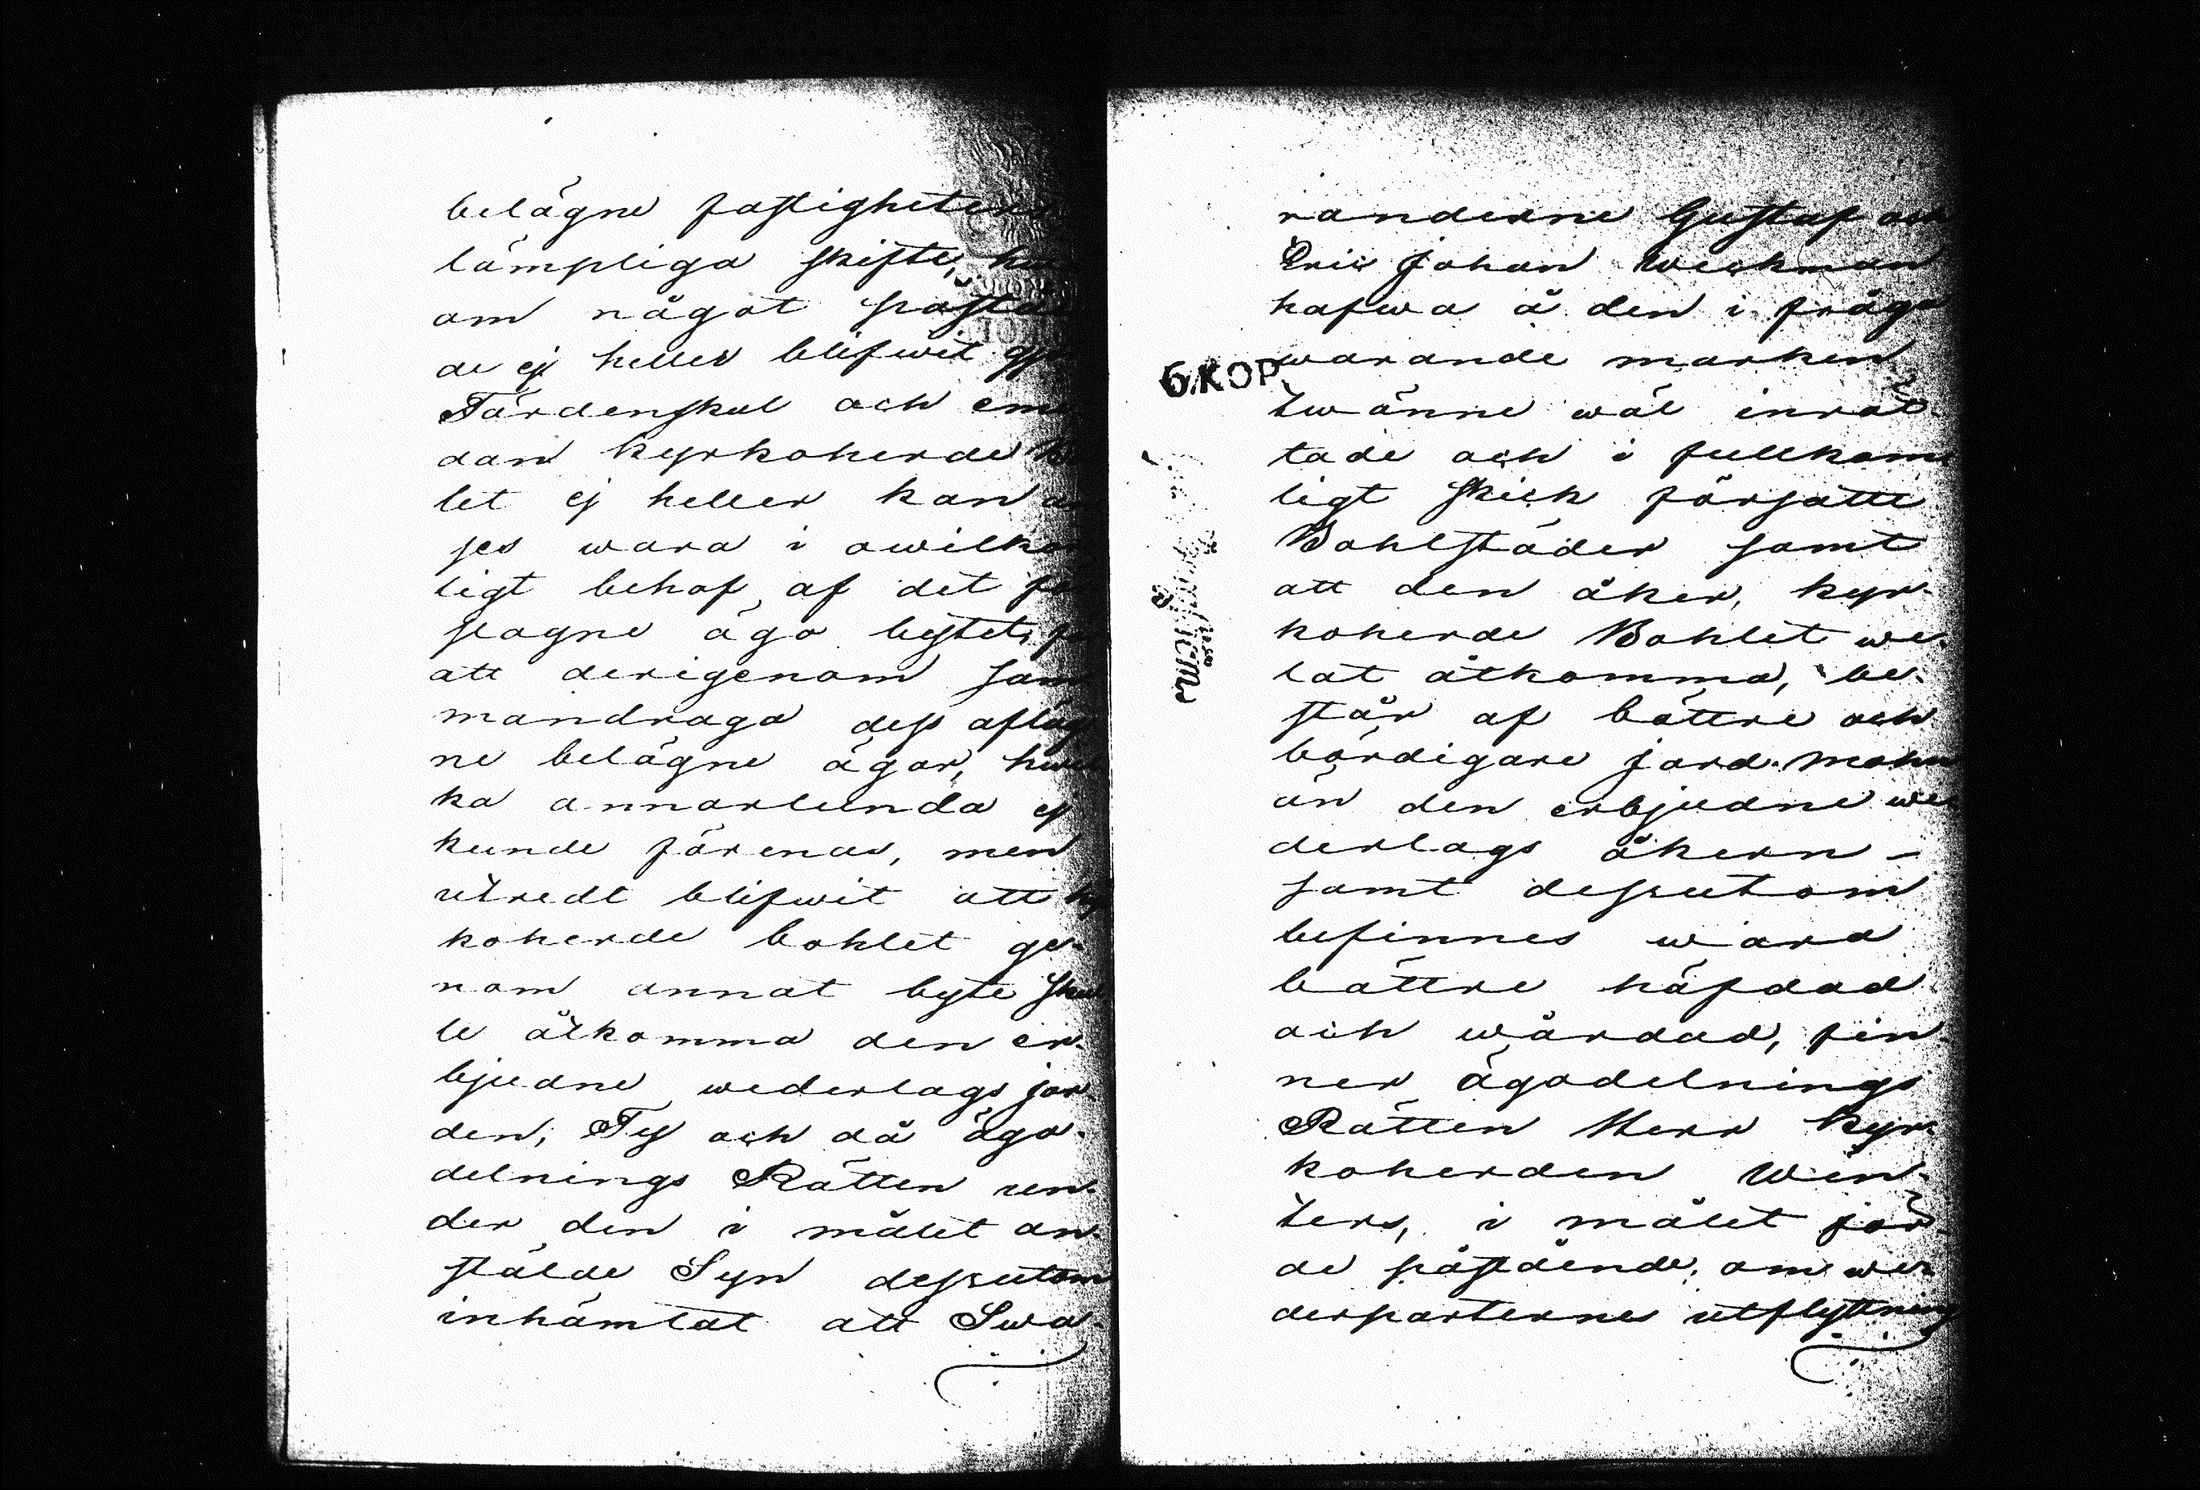 belägne fastighetens
lämpliga skifte,
om något påstå
de ej heller blifwit
Färdenskul och eme
dan Kyrkoherde
let ej heller kan
ses wara i owilkor
ligt behof af det
slagne ägo bytet,
att derigenom sam
mandraga dess afläg
ne belägne ägor, hwil
ka annorlunda ej
kunde förenas, men
utredt blifwit att ky
koherde bohlet ge-
nom annat byte skul
le åtkomma den er-
bjudne wederlags jor-
den; Ty och då ägo-
delnings Rätten un-
der den i målet an-
stälde Syn dessutom
inhämtat att Swa-
randerne Gustaf och
Eric Johan Weckman
hafwa å den i fråga
warande marken
6 KOP
twänne wäl inrät-
tade och i fullkom
ligt skick försatte
Bohlstäder samt
att den åker, kyr-
koherde Bohlet we-
lat åtkomma, be-
står af bättre och
bördigare jord-mohn
än den erbjudne we
derlags åkern -
samt dessutom
befinnes wara
bättre häfdad
och wårdad, fin-
ner Ägodelnings
Rätten Herr Kyr-
koherden Win-
ters, i målet för-
de påstående, om we-
derparternes utflyttning